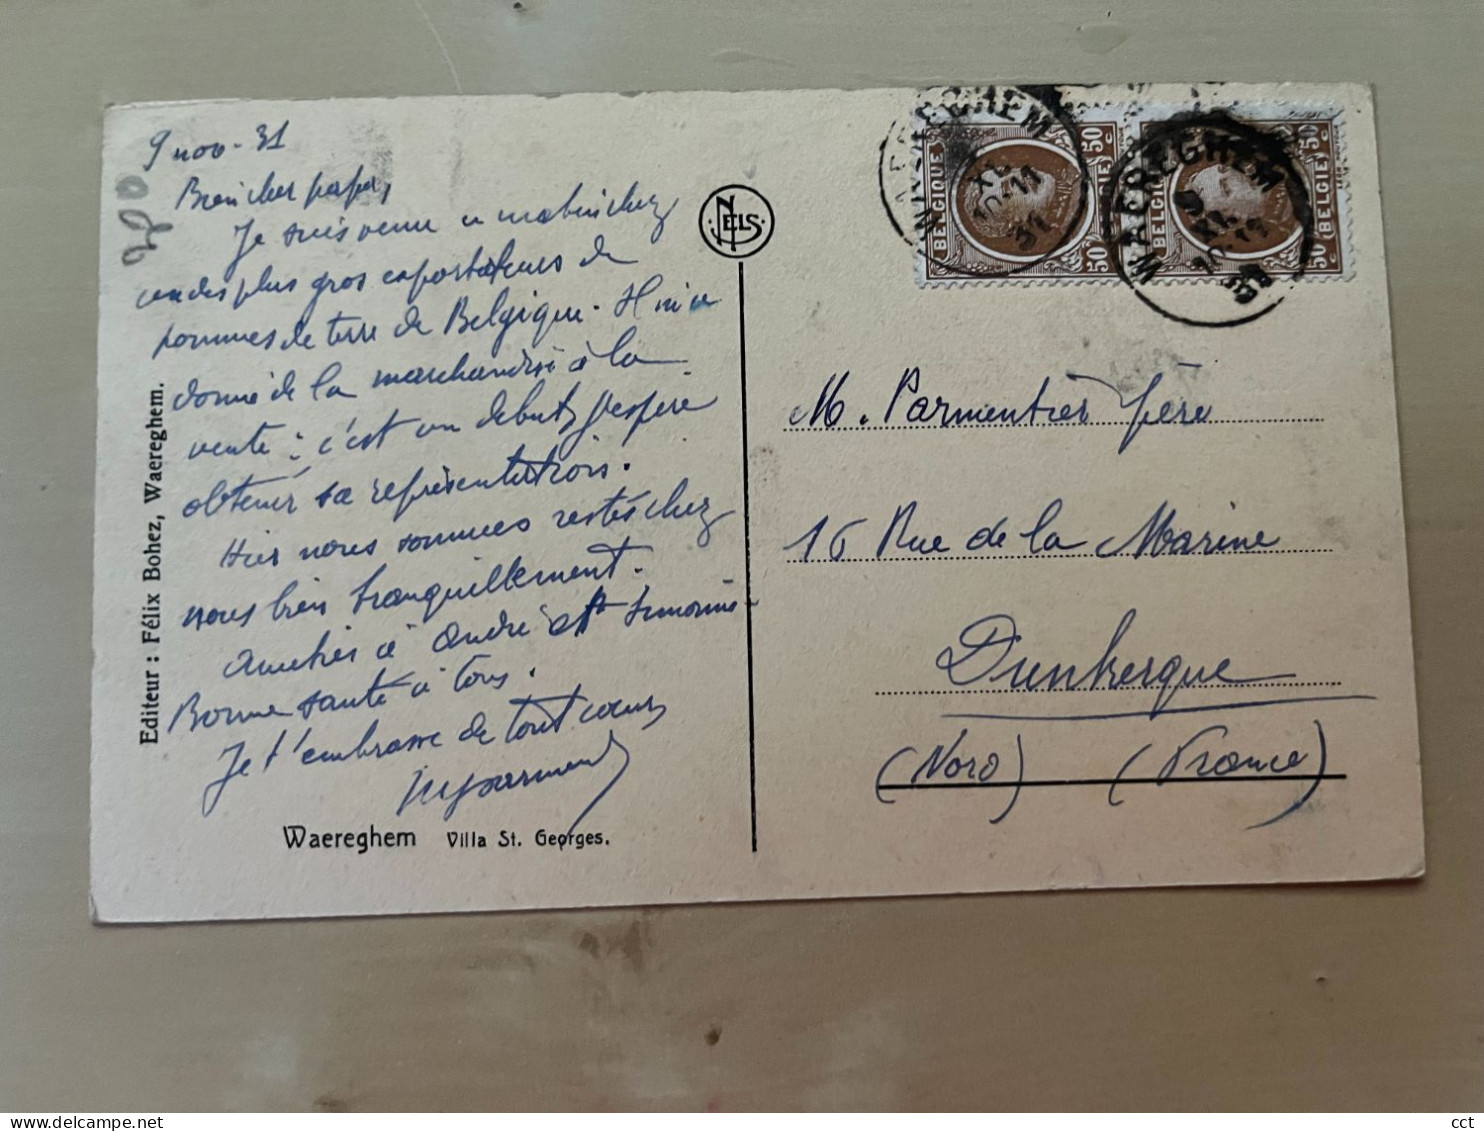 9 nov - 31
Bien cher papa,
Je suis venu ce matin chez
un des plus gros exportateurs de
pommes de terre de Belgique. Il m'a
donné de la marchandise à la
vente : c'est un début, j'espère
obtenir sa représentation.
Hier nous sommes restés chez
nous bien tranquillement.
Amitiés à André et
Bonne santé à tous.
Je t'embrasse de tout coeur
Editeur : Félix Bohez, Waereghem.
Waereghem Villa St. Georges.
NELS
WAEREGHEM
XI
10-11
31
WAEREGHEM
BELGIQUE 50 c BELGIË 50
BELGIQUE 50 c BELGIË 50
M. Parmentier père
16 Rue de la Marine
Dunkerque
(Nord) (France)
cct